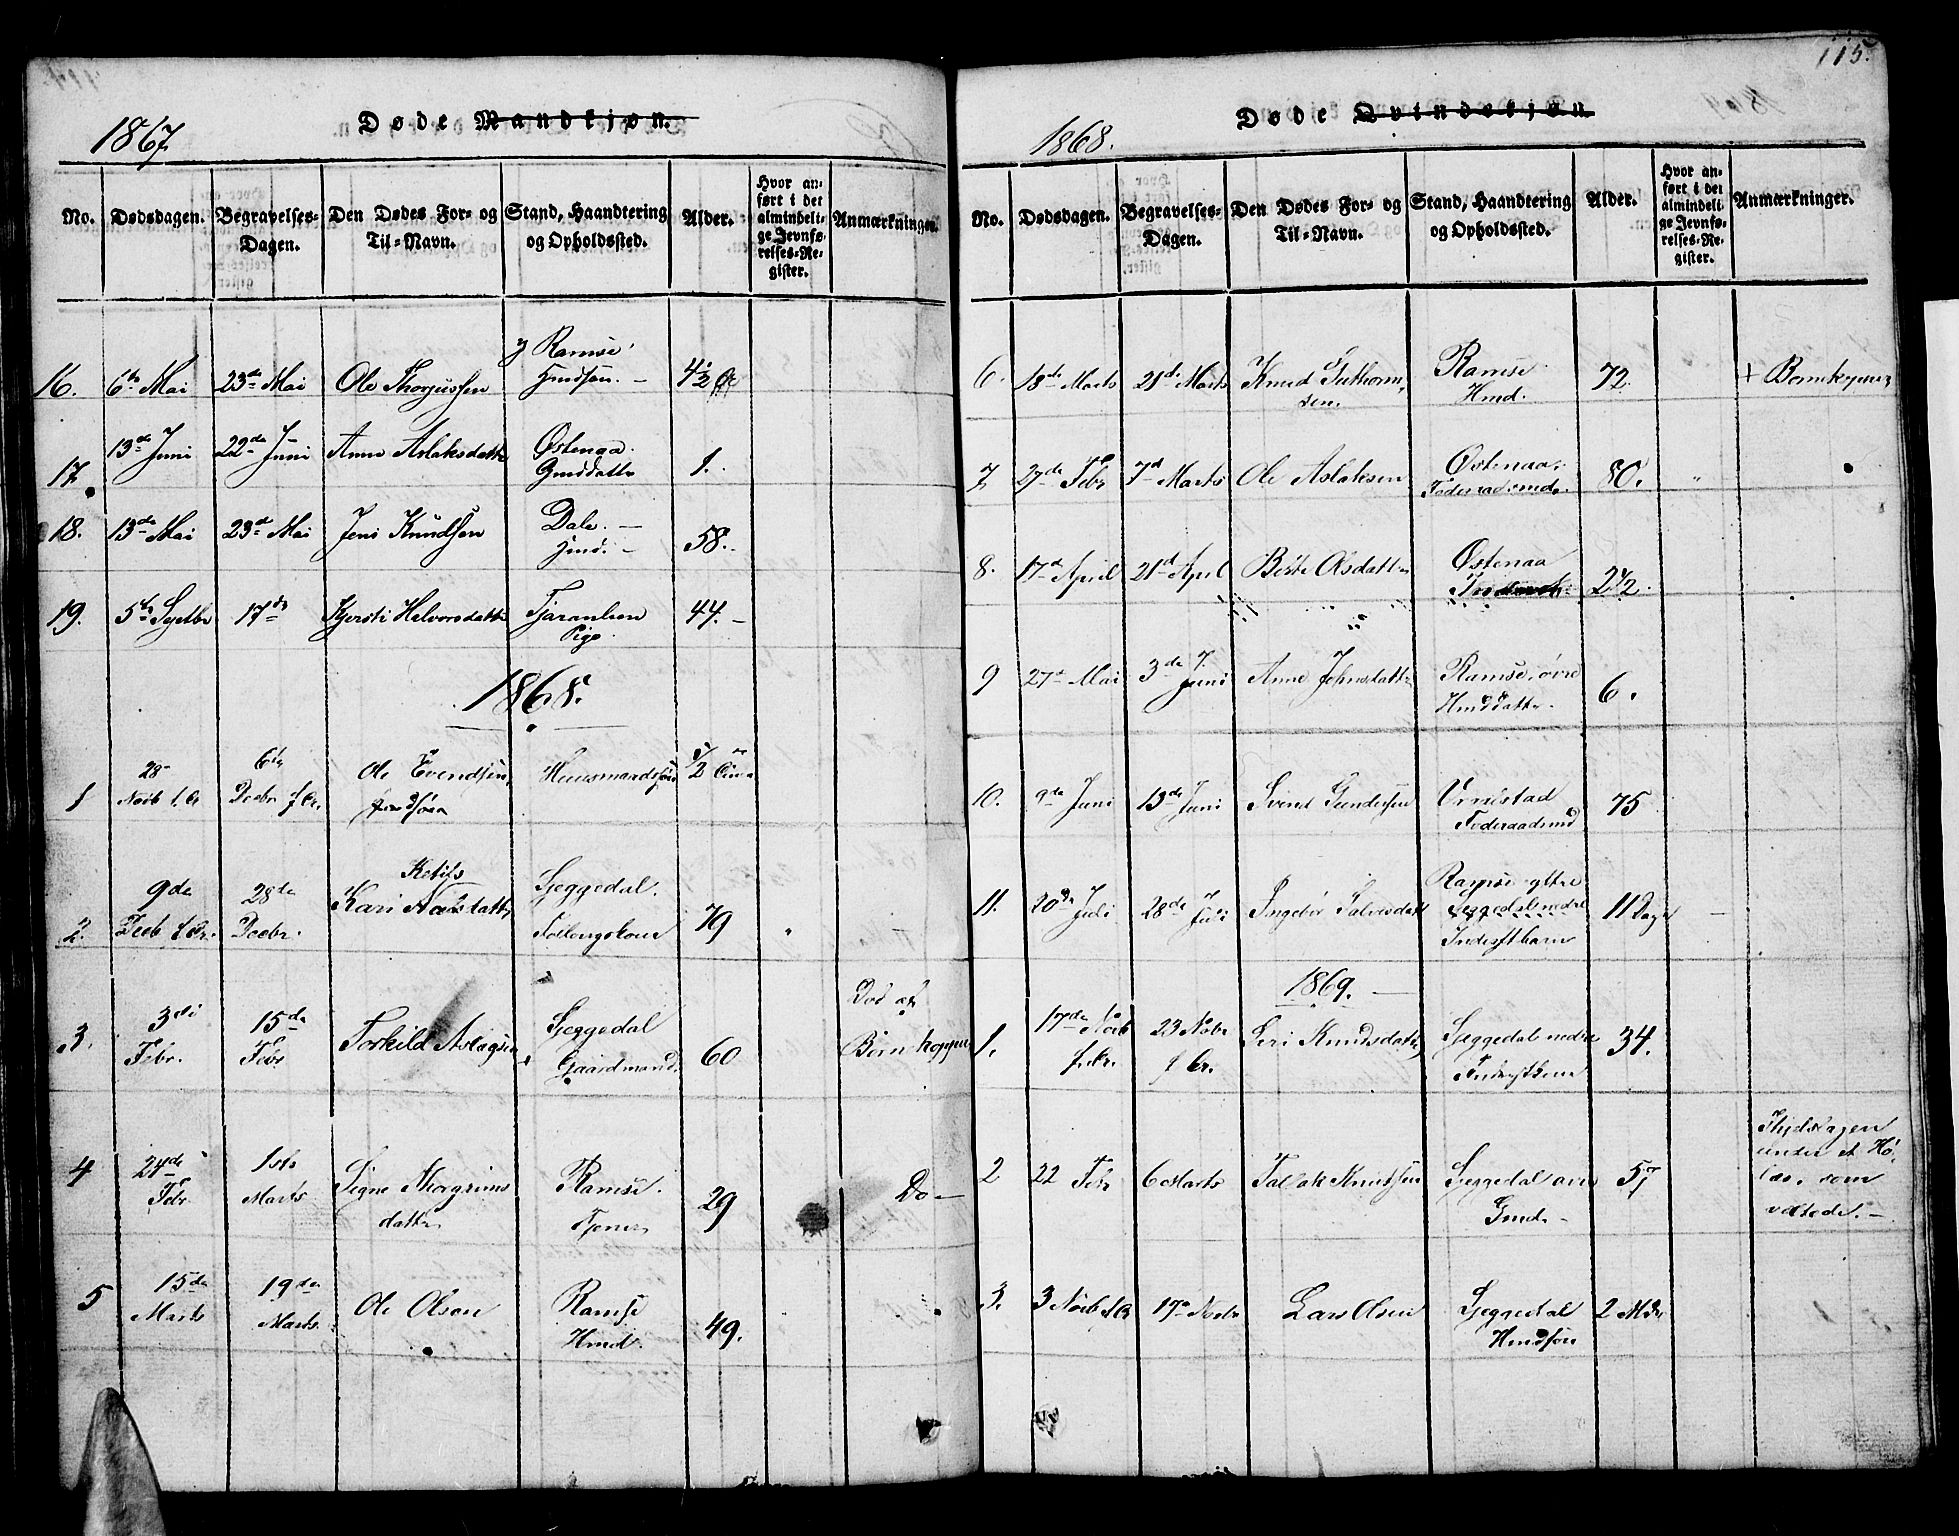 115.
1867
Døde Mandkjøn.
No. Dødsdagen. Begravelses-Dagen. Den Dødes For- og Til-Navn. Stand, Haandtering og Opholdssted. Alder. Hvor anført i det almindelige Jevnførelses-Register. Anmærkninger.
16. 6te Mai 23de Mai Ole Thorjussen Ramse 4½
17. 13de Juni 22de Juni Anne Aslaksdattr Østenaa Gmddattr 1.
18. 13de Mai 23de Mai Jens Knudsen Dale. 58.
19. 5te Septbr 17de Kjersti Halvorsdattr Pige 44.
1868.
1 28 Novb f. Ar 6te Decbr f Ar. Ole Evendsen Huusmandssøn ½
2. 9de Decb f Ar. 28de Decbr. Kari Ketils Sjeggedal. 79
3. 3die Febr. 15de Febr Torkild Aslagsen Sjeggedal Gaardmand. 60 Død af Børnkopper
4 24de Febr 1ste Marts Signe Thorgrimsdattr Ramse. Tjener 29 Do
5 15de Marts 19de Marts. Ole Olsen Ramse Hmd. 49.
1868.
Døde Qvindekjøn.
No. Dødsdagen. Begravelses-Dagen. Den Dødes For- og Til-Navn. Stand, Haandtering og Opholdssted. Alder. Hvor anført i det almindelige Jevnførelses-Register. Anmærkninger.
6. 18de Marts 21de Marts Knud Guthormsen. Ramse Hmd. 72. + Børnekopper
7 27de Febr 7d Marts Ole Aslaksen Østenaa. Føderaadsmd. 80. "
8. 17d April 21d April Birte Olsdattr Østenaa 2½
9 27d Mai 3de Juni Anne Johnsdattr Ramse, øvre Hmddattr. 6.
10. 9de Juni 13de Juni Svend Gundersen Urnestad Føderaadsmd 75
11. 20de Juli 28de Juli Ingebor Salvesdatt Ramse yttre Sjeggedal nedre Inderstbarn 11 Dage
1869.
1. 17de Novb f. Ar. 23 Novbr f Ar. Siri Knudsdattr Sjeggedal nedre 34.
2 22 Febr 6 Marts Talak Knutsen Sjeggedal Gmd. 57 Ihjelslagen under et Hølæs, som væltede.
3. 3 Novb f Ar 17de Novbr Lars Olsen Sjeggedal Hmdsøn 2 Mdr